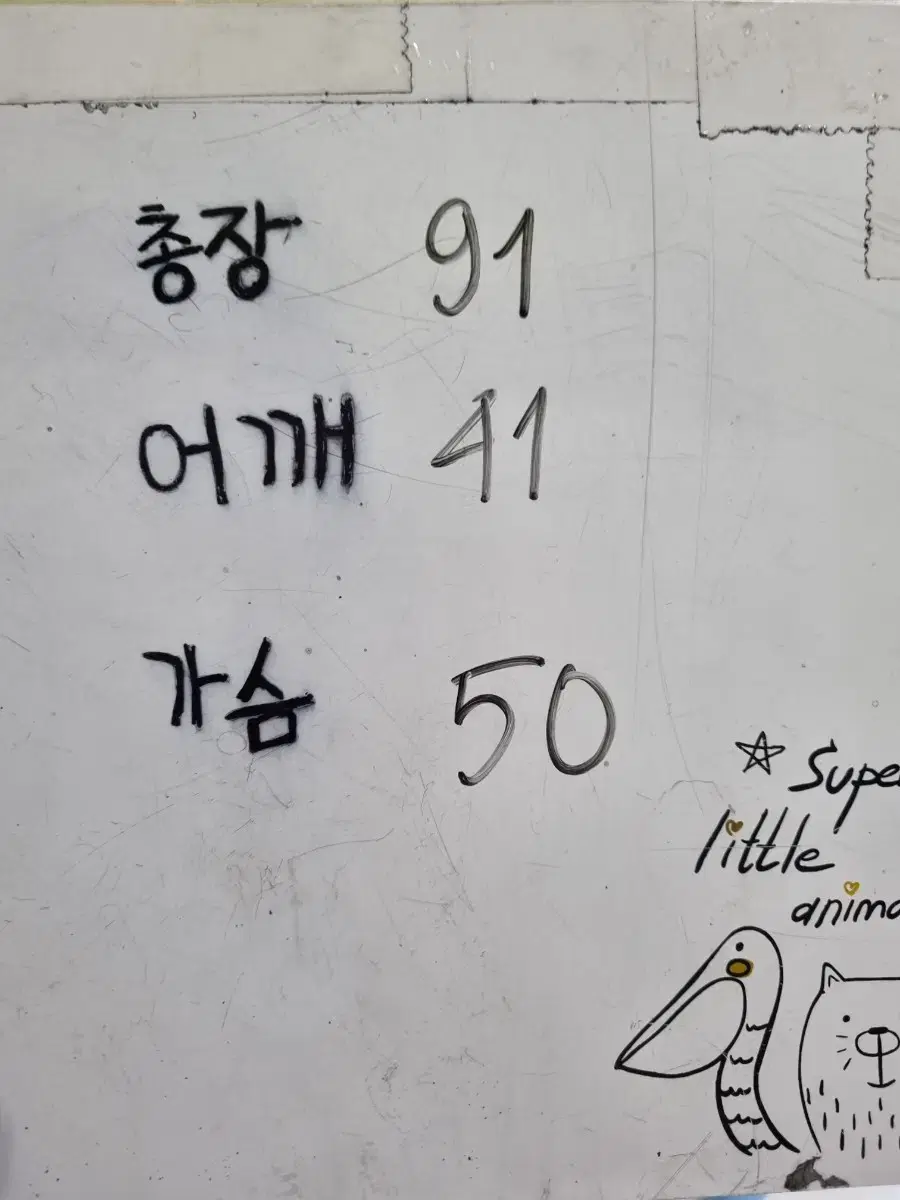 총장 91
어깨 41
가슴 50
☆ Supe
little
anima